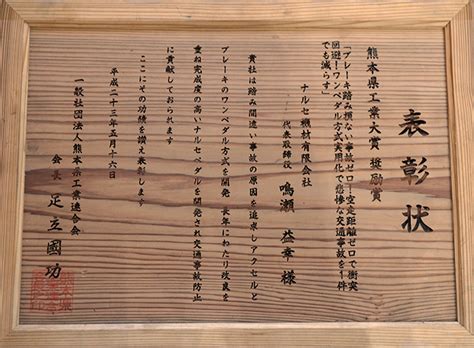 表彰状
熊本県工業大賞 奨励賞
「ブレーキ踏み損ない事故ゼロ！空走距離ゼロで衝突
回避！ワンペダル方式実用化で悲惨な交通事故を1件
でも減らす」
ナルセ機材有限会社
代表取締役 鳴瀬 益幸 様
貴社は踏み間違い事故の原因を追求しアクセルと
ブレーキのワンペダル方式を開発 長年にわたり改良を
重ね完成度の高いナルセペダルを開発され交通事故防止
に貢献しておられます
ここにその功績を讃え表彰します
平成二十三年五月十六日
一般社団法人熊本県工業連合会
会長 足立國功